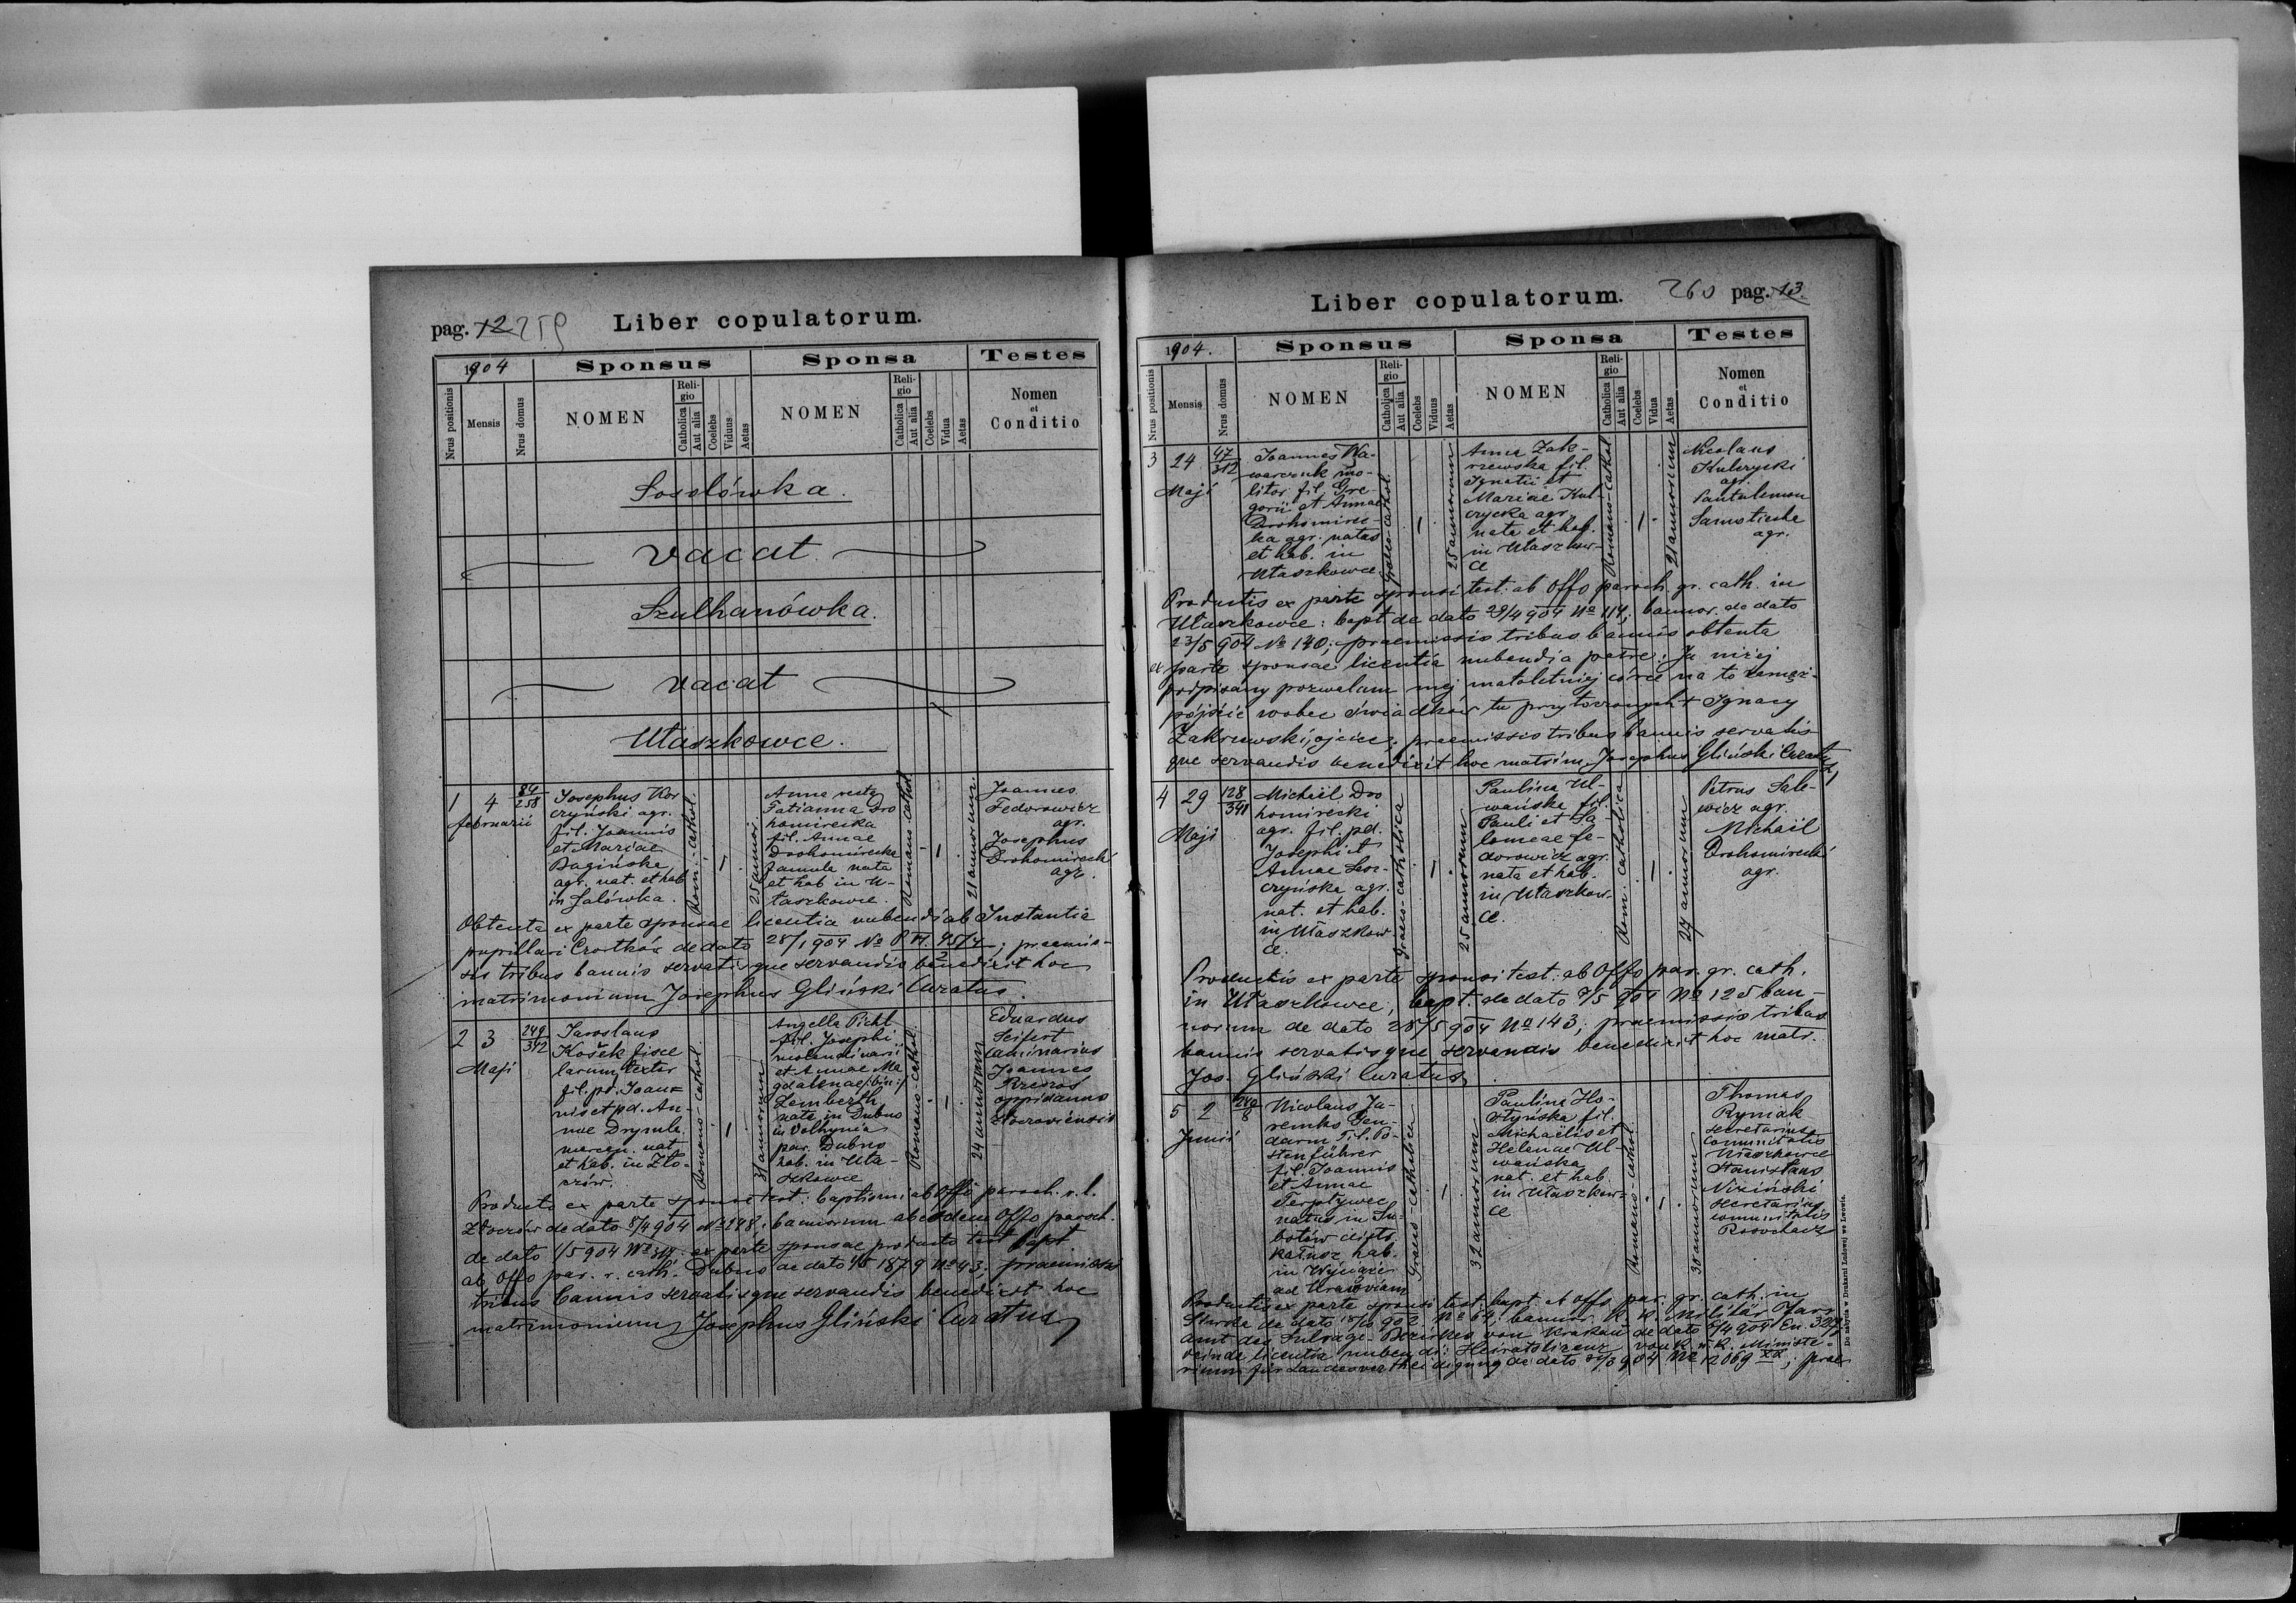 pag. 12 259 Liber copulatorum.
1904 Sponsus Sponsa Testes
Nrus positionis Mensis Nrus domus NOMEN Religio Catholica Aut alia Coelebs Viduus Aetas NOMEN Religio Catholica Aut alia Coelebs Vidua Aetas Nomen et Conditio
Sosolówka.
vacat
Szulhanówka.
vacat
Ułaszkowce.
1 4 februarii 84/258
Josephus Kor
czyński agr.
fil. Joannis
et Mariae
Bagińska
agr. nat. et hab
in Salówka.
Rom. cathol.
25 annor.
Anna recte
Tatianna Dro
homirecka
fil. Annae
Drohomirecka
famula nata
et hab in U-
łaszkowce.
Romano-cathol.
21 annorum
Joannes
Fedorowicz
agr.
Josephus
Drohomirecki
agr.
Obtenta ex parte sponsae licentia nubendi ab Instantia
pupillari Czortków de dato 28/1 904 No P VI. 45/4/2; praemis-
sis tribus bannis servatisque servandis benedixit hoc
matrimonium Josephus Gliński Curatus.
2 3 Maji 249/312
Jaroslaus
Košek fisce
larum textor
fil. pd. Joan=
nis et pd. An-
nae Drymla
mercen. nat
et hab. in Zło-
czów.
Romano cathol.
31 annorum
Angella Pichl
fil. Josephi
molendinarii
et Annae Ma
gdalenae /:bin:/
Lemberth
nata in Dubno
in Volhynia
par. Dubno
hab. in Uła-
szkowce
Romano-cathol.
24 annorum
Eduardus
Seifert
laminarius
Joannes
Rzezroś
oppidanus
złoczoviensis
Producto ex parte sponsi test. baptismi ab Offo paroch. r. l.
Złoczów de dato 8/4 904 No 298, bannorum ab eodem Offo paroch.
de dato 1/5 904 No 314; ex parte sponsae producto test bapt
ab Offo par. r. cath. Dubno de dato 1879 No 43; praemissis
tribus bannis servatisque servandis benedixit hoc
matrimonium Josephus Gliński Curatus
Liber copulatorum. 260 pag. 13.
1904. Sponsus Sponsa Testes
Nrus positionis Mensis Nrus domus NOMEN Religio Catholica Aut alia Coelebs Viduus Aetas NOMEN Religio Catholica Aut alia Coelebs Vidua Aetas Nomen et Conditio
3 24 Maji 47/312
Joannes Wa-
warczuk mo-
litor fil. Gre-
gorii et Annae
Drohomirec-
ka agr. natus
et hab. in
Ułaszkowce
Graeco-cathol.
25 annorum
Anna Zak-
rzewska fil.
Ignatii et
Mariae Kul-
czycka agr.
nata et hab.
in Ułaszkow-
ce
Romano-cathol.
21 annorum
Nicolaus
Kulczycki
agr.
Pantalemon
Samoticha
agr.
Productis ex parte sponsi test. ab Offo paroch. gr. cath. in
Ułaszkowce: bapt de dato 29/4 904 No 114; bannor. de dato
23/5 904 No 140; praemissis tribus bannis obtenta
ex parte sponsae licentia nubendi a patre: Ja niżej
podpisany pozwalam mej małoletniej córce na to zamąż-
pójście wobec świadków tu przytoczonych + Ignacy
Zakrzewski, ojciec; praemissis tribus bannis servatis-
que servandis benedixit hoc matrim. Josephus Gliński Curatus
4 29 Maji 128/341
Michaël Dro
homirecki
agr. fil. pd.
Josephi et
Annae Lesz-
czyńska agr.
nat. et hab.
in Ułaszkow
ce.
Graeco-catholica
25 annorum
Paulina Ul-
wańska fil.
Pauli et Sa-
lomeae Fe-
dorowicz agr.
nata et hab.
in Ułaszkow-
ce.
Rom. catholica
27 annorum
Petrus Sale-
wicz agr.
Michaël
Drohomirecki
agr.
Productis ex parte sponsi test. ab Offo par. gr. cath.
in Ułaszkowce; bapt. de dato 7/5 904 No 125 ban-
norum de dato 28/5 904 No 143; praemissis tribus
bannis servatisque servandis benedixit hoc matr.
Jos. Gliński Curatus.
5 2 Junii 240/8
Nicolaus Ja-
remko Gen-
darm Tit. Po-
stenführer
fil. Joannis
et Annae
Terptywec
natus in Su-
botów distr.
Kałusz hab.
in Wyciąże
ad Kracoviam
Graeco-catholica
32 annorum
Paulina Ho-
styńska fil.
Michaëlis et
Helenae Ul-
wańska
nat. et hab.
in Ułaszkow-
ce
Romano-cathol.
30 annorum
Thomas
Rymiak
secretarius
communitatis
Ułaszkowce
Stanislaus
Niziński
secretarius
communitatis
Rosochacz
Productis ex parte sponsi test. bapt. ab Offo par. gr. cath. in
de dato 18/10 902 No 64; bannor. K. K. Militär Pfarr
amt des Seelsorge-Bezirkes von Krakau de dato 904 En. 327,
deinde licentia nubendi: Heiratslizenz von K. K. Ministe-
rium für Landesvertheidigung de dato 904 No 12069 XX; prae
Do nabycia w Drukarni Ludowej we Lwowie.